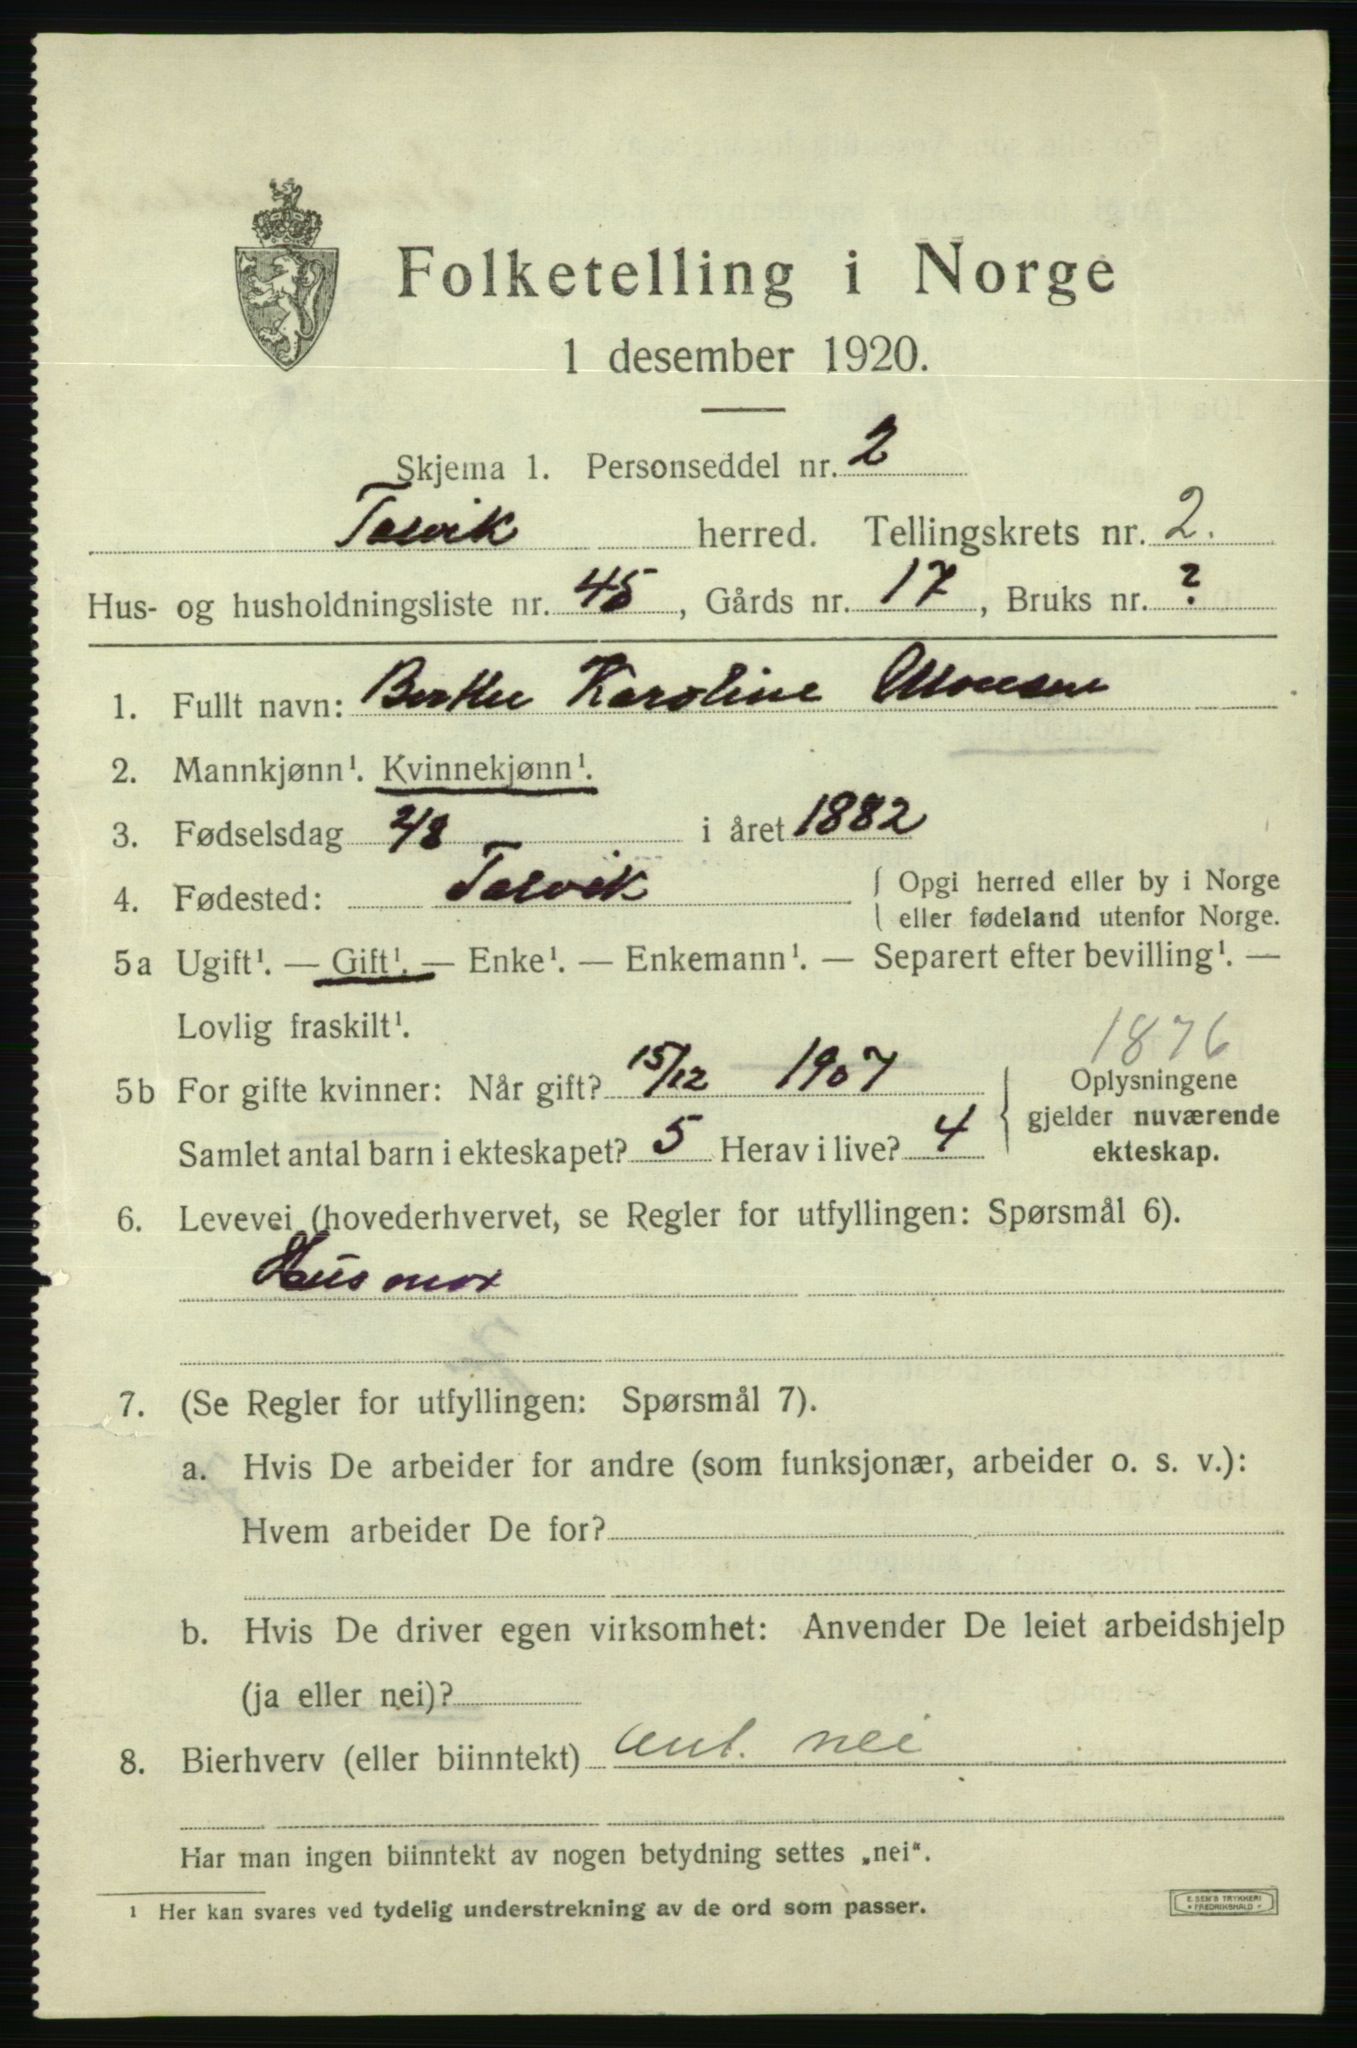 Folketelling i Norge
1 desember 1920.
Skjema 1. Personseddel nr. 2
Talvik herred. Tellingskrets nr. 2.
Hus- og husholdningsliste nr. 45, Gårds nr. 17, Bruks nr. ?
1. Fullt navn: Berthe Karoline Monsen
2. Mannkjønn¹. Kvinnekjønn¹.
3. Fødselsdag 2/8 i året 1882
4. Fødested: Talvik { Opgi herred eller by i Norge
eller fødeland utenfor Norge.
5a Ugift¹. — Gift¹. — Enke¹. — Enkemann¹. — Separert efter bevilling¹. —
Lovlig fraskilt¹.
1876
5b For gifte kvinner: Når gift? 15/12 1907 { Oplysningene
gjelder nuværende
Samlet antal barn i ekteskapet? 5 Herav i live? 4 ekteskap.
6. Levevei (hovederhvervet, se Regler for utfyllingen: Spørsmål 6).
Husmor
7. (Se Regler for utfyllingen: Spørsmål 7).
a. Hvis De arbeider for andre (som funksjonær, arbeider o. s. v.):
Hvem arbeider De for?
b. Hvis De driver egen virksomhet: Anvender De leiet arbeidshjelp
(ja eller nei)?
8. Bierhverv (eller biinntekt) ant. nei
Har man ingen biinntekt av nogen betydning settes „nei“.
¹ Her kan svares ved tydelig understrekning av de ord som passer.
E. SEM'S TRYKKERI
• FREDRIKSHALD •